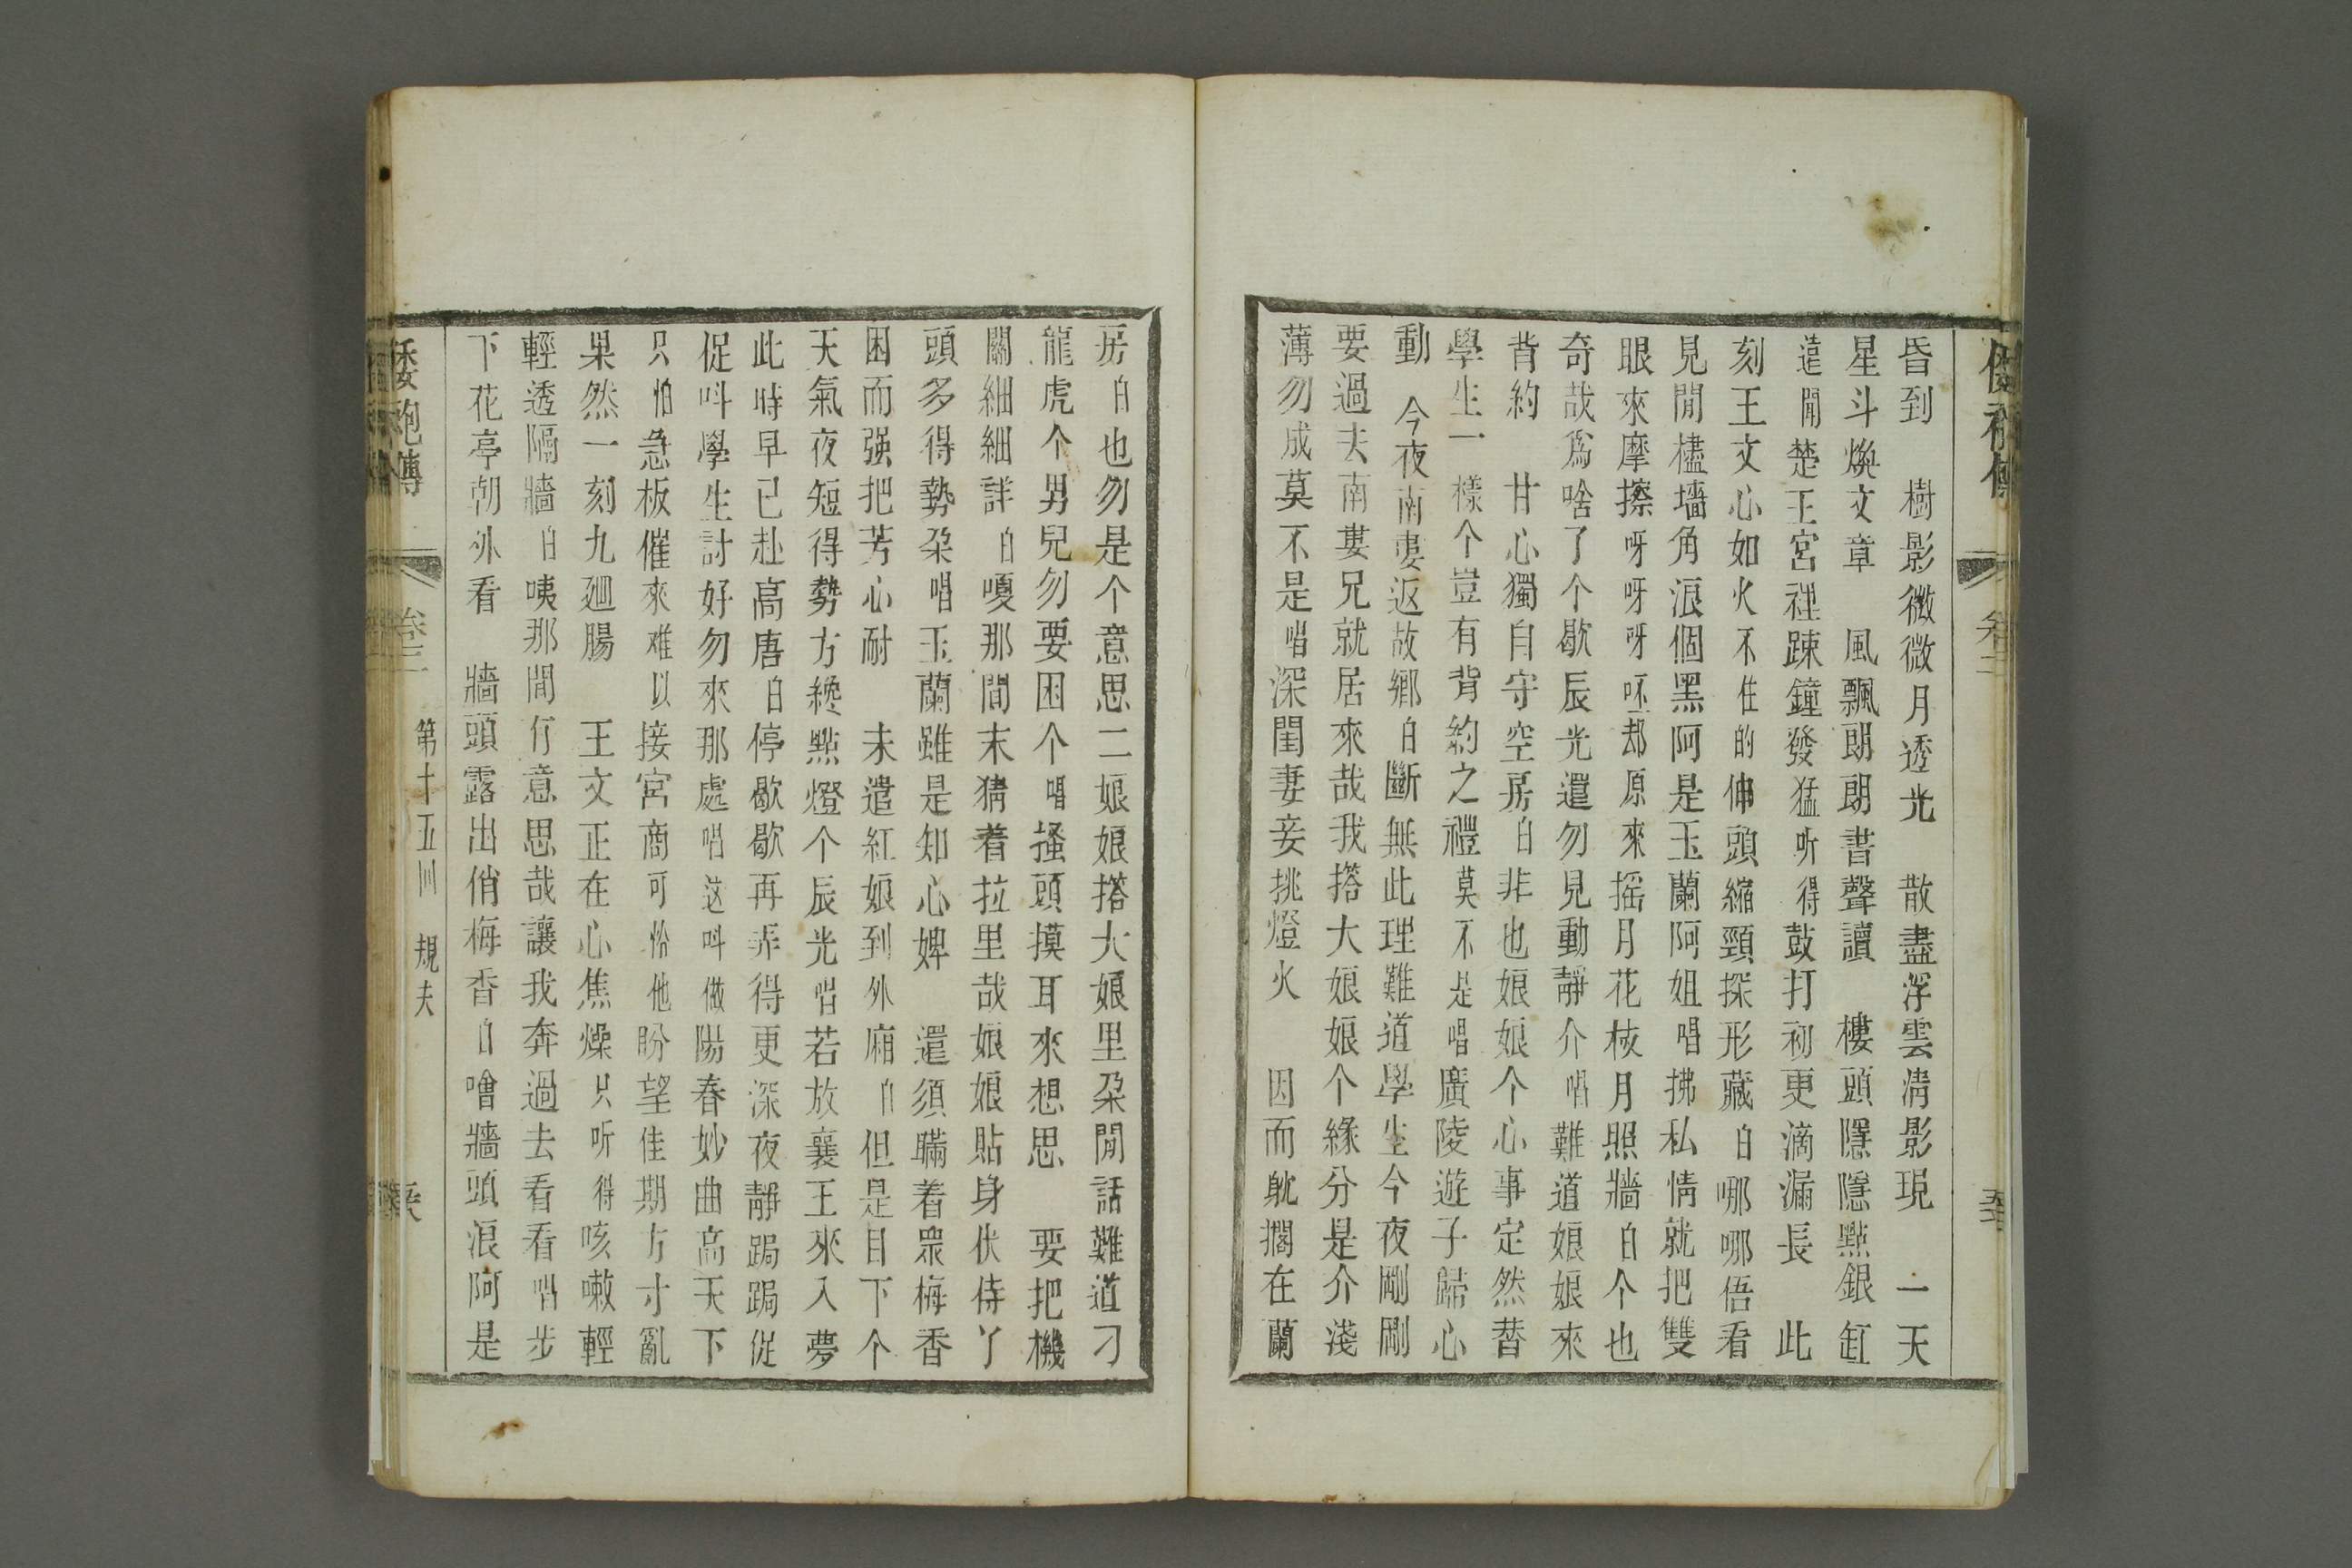 昏到　樹影微微月透光　散盡浮雲淸影現　一天
星斗煥文章　風飄朗朗書聲讀　樓頭隱隱點銀缸
遠聞楚王宮裡踈鐘發猛听得鼓打初更滴漏長　此
刻王文心如火不住的伸頭縮頸探形藏白哪哪俉看
見閒櫨墻角浪個黑阿是玉蘭阿姐唱拂私情就把雙
眼來摩擦呀呀呀呸却原來摇月花枝月照牆白个也
奇哉爲啥了个歇辰光還勿見動靜介唱難道娘娘來
背約　甘心獨自守空房白非也娘娘个心事定然替
學生一樣个豈有背約之禮莫不是唱廣陵遊子歸心
動　今夜南婁返故鄉白斷無此理難道學生今夜剛剛
要過去南婁兄就居來哉我撘大娘娘个緣分是介淺
薄勿成莫不是唱深閨妻妾挑燈火　因而躭擱在蘭
房白也勿是个意思二娘娘撘大娘里朶閒話難道刁
龍虎个男兒勿要困个唱搔頭摸耳來想思　要把機
關細細詳白嗄那間末猜着拉里哉娘娘貼身伏侍丫
頭多得勢朶唱玉蘭雖是知心婢　還須瞞着眾梅香
因而强把芳心耐　未遣紅娘到外廂白但是目下个
天氣夜短得勢方纔點燈个辰光唱若放襄王來入夢
此時早已赴高唐白停歇歇再弄得更深夜靜跼跼促
促呌學生討好勿來那處唱这呌做陽春妙曲高天下
只怕急板催來难以接宮商可怜他盼望佳期方寸亂
果然一刻九廻腸　王文正在心焦燥只听得咳嗽輕
輕透隔牆白咦那間有意思哉讓我奔過去看看唱步
下花亭朝外看　牆頭露出俏梅香白噲牆頭浪阿是
倭袍傳　卷三　第十五回　規夫